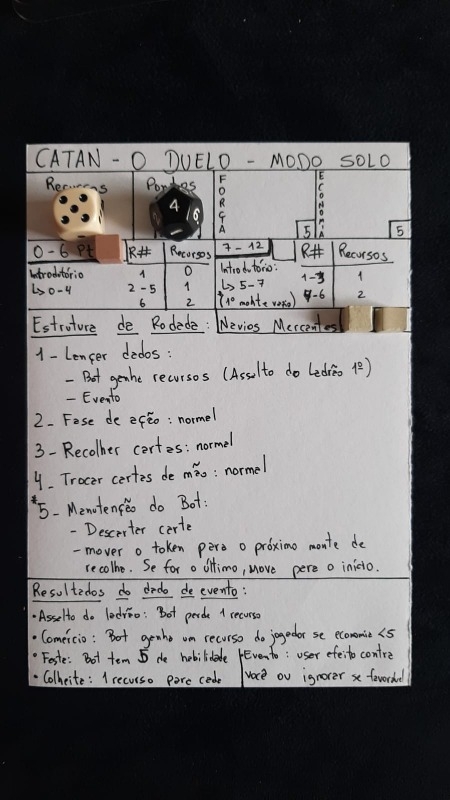 CATAN - O DUELO - MODO SOLO
Recursos
Pontos
FORÇA
5
ECONOMIA
5
4
6
0-6 Pt
R#
Recursos
7-12
R#
Recursos
Introdutório
↳ 0-4
1 0
2-5 1
6 2
Introdutório:
↳ 5-7
*(1º monte vazio)
1-3 1
4-6 2
Estrutura da Rodada:
Navios Mercantes
1 - Lançar dados:
- Bot ganha recursos (Assalto do Ladrão 1º)
- Evento
2 - Fase de ação: normal
3 - Recolher cartas: normal
4 - Trocar cartas de mão: normal
*5 - Manutenção do Bot:
- Descartar carta
- mover o token para o próximo monte de
recolha. Se for o último, mova para o início.
Resultados do dado de evento:
• Assalto do ladrão: Bot perde 1 recurso
• Comércio: Bot ganha um recurso do jogador se economia <5
• Festa: Bot tem 5 de habilidade
• Colheita: 1 recurso para cada
• Evento: usar efeito contra
você ou ignorar se favorável